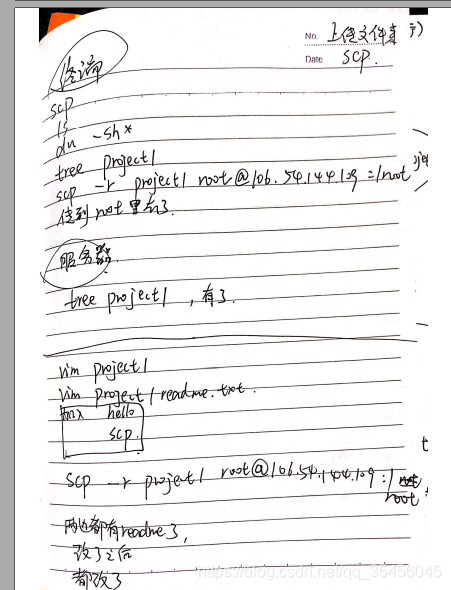 No. 上传文件夹
Date SCP.
终端
scp
ls
du -sh*
tree project1
scp -r project1 root@106.54.144.109:/root
传到root里去了.
服务器
tree project1 , 有了.
vim project1
vim project1/readme.txt.
加入 hello
scp.
scp -r project1 root@106.54.144.109:/
root
两边都有readme了,
改了之后
都改了
https://blog.csdn.net/qq_35456045